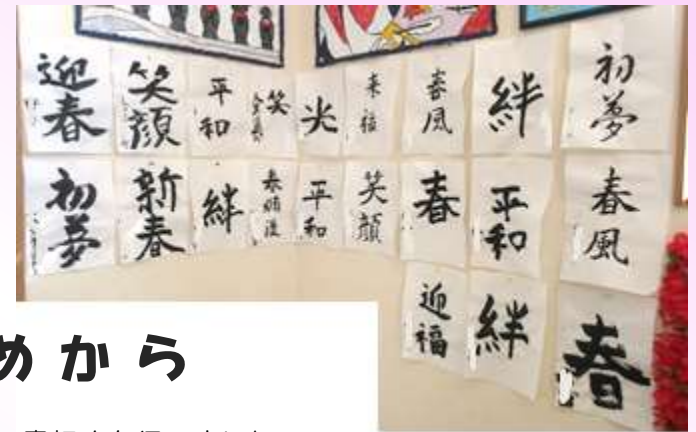 迎春
笑顔
平和
笑
光
来福
春風
絆
初夢
初夢
新春
絆
平和
笑顔
春
平和
春風
迎福
絆
春
めから